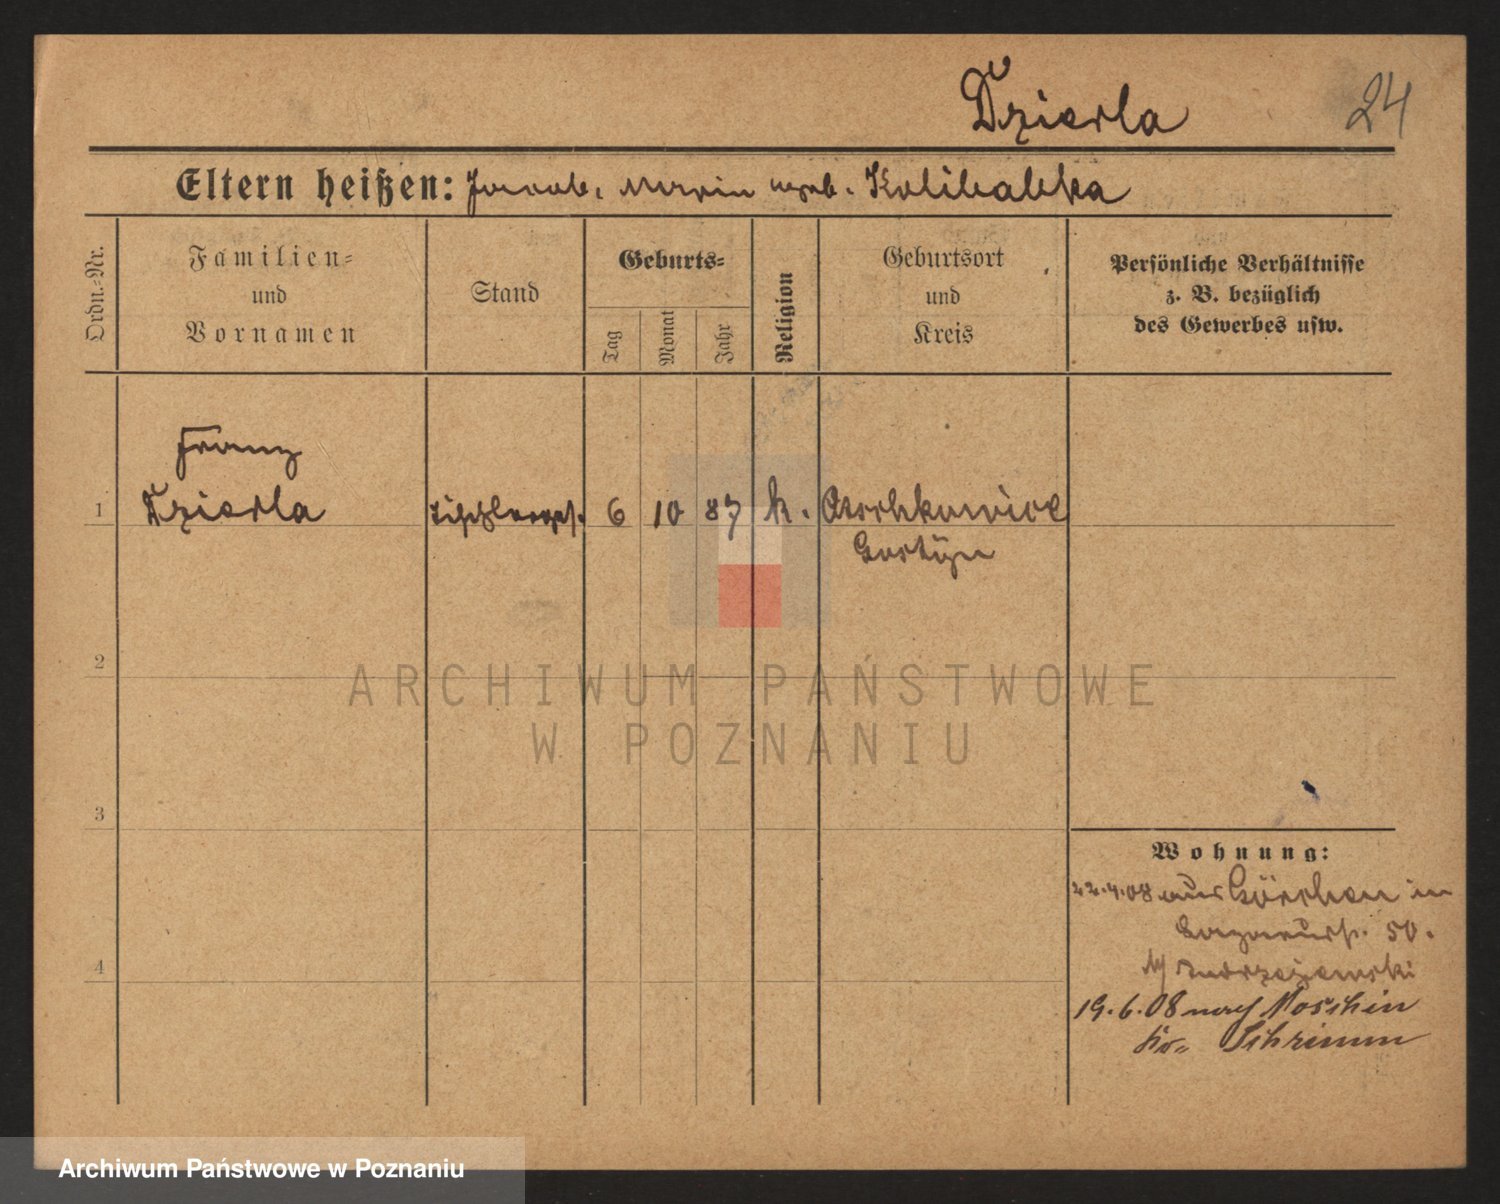 Dzierla
24
Eltern heißen: Jacob, Maria geb. Kolibabka
Ordn.-Nr.
Familien-
und
Vornamen
Stand
Geburts-
Tag
Monat
Jahr
Religion
Geburtsort
und
Kreis
Persönliche Verhältnisse
z. B. bezüglich
des Gewerbes usw.
Franz
1 Dzierla Tischlerges. 6 10 87 k.
Gostyn
2
ARCHIWUM PAŃSTWOWE
W POZNANIU
3
Wohnung:
22.4.08 aus Görchen in
50.
4
Andrzejewski
19.6.08 nach Moschin
Kr. Schrimm
Archiwum Państwowe w Poznaniu